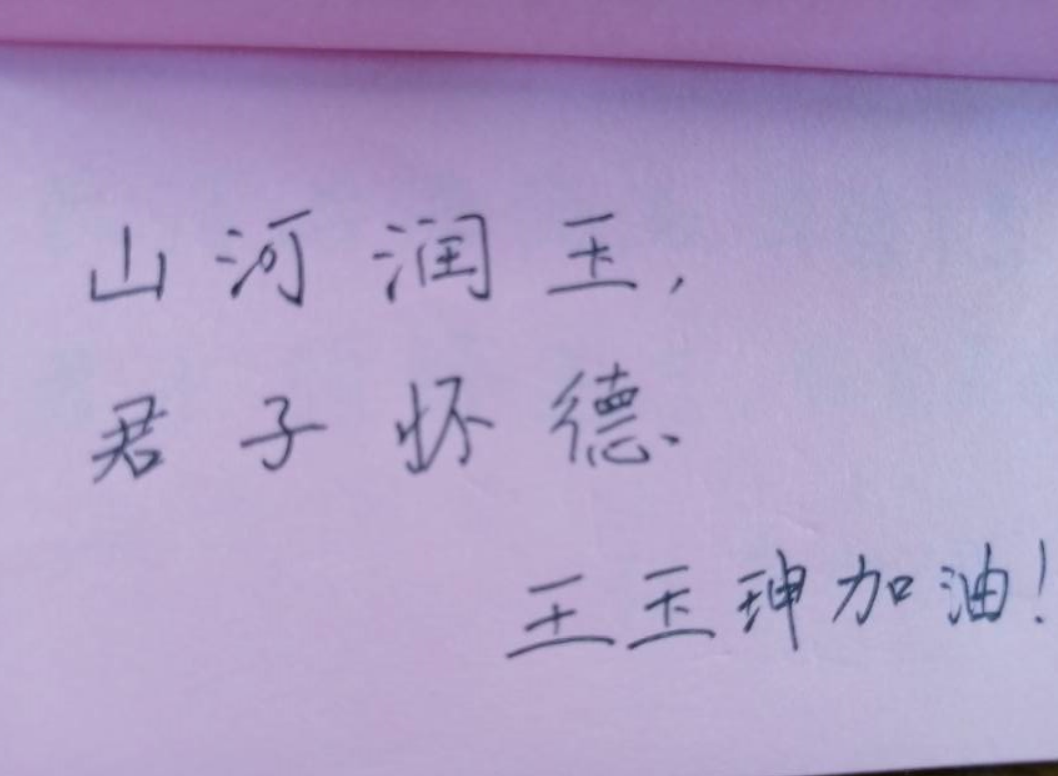 山河润玉，
君子怀德
王玉珅加油！